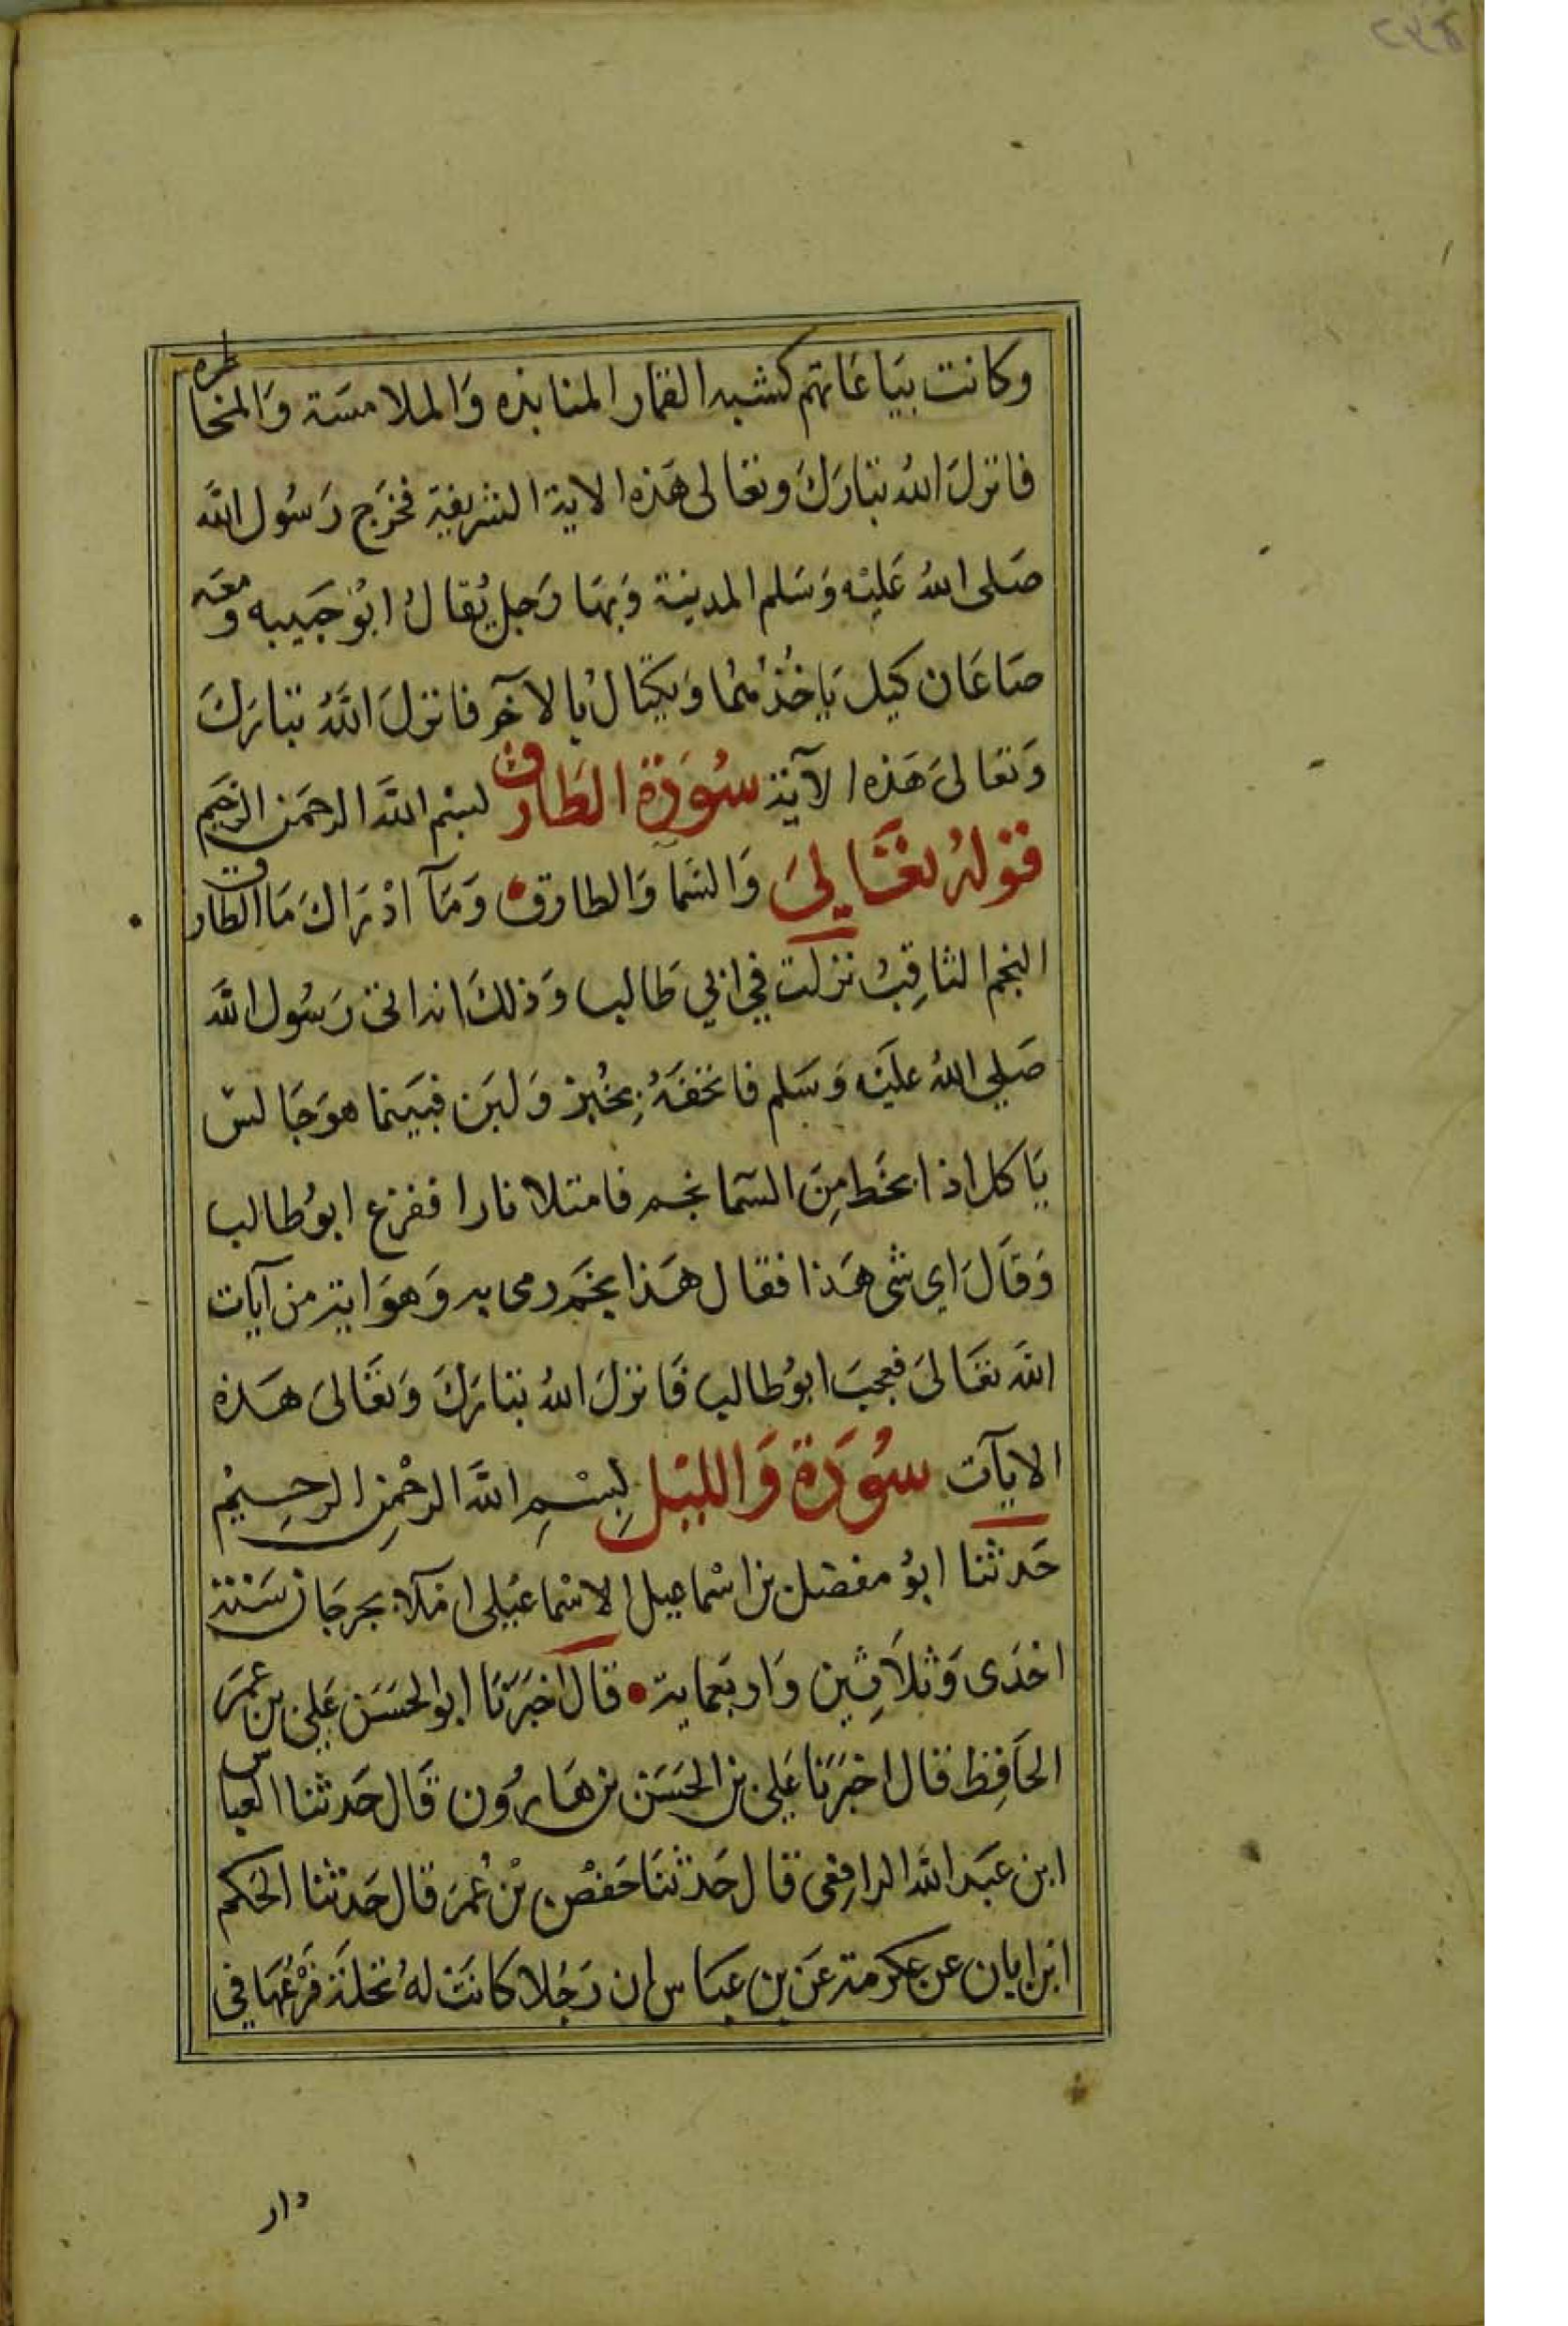 وكانت بيَاعَاتهم كشبه القمار المنابذه وَالملامسَة وَالمخاطره
فانزلَ اللهُ تبَارَكَ وتعَالى هَذه الاية الشريفية فخرَج رَسُول الله
صَلى اللهُ عَليْه وَسَلم المدينة وَبهَا رَجل يُقالُ ابُو جَهيبه ومعَه
صَاعَان كيل يَاخُذ منهُا وَيكتالُ بالآخر فانزلَ اللهُ تبَارَكَ
وَتعَالىَ هَذه الآية سُورَة الطَارق لبسْم الله الرحمَن الرَّحيَم
قولهُ تعَالىَ وَالسَما وَالطارق • وَمَآ ادْرَاكَ مَا الطارق
النجم الثاقِبُ نزلت في ابي طَالب وَذلكَ انه اتى رَسُول الله
صَلي اللهُ عليَه وَسَلم فاتحفَهُ بخُبز وَلبَن فبَينما هوَ جَالس
يَاكل اذا نخط مِنَ السَما نجم فامتلا نارا ففزع ابوُ طالب
وَقَالَ اي شى هَذا فقال هَذا نجَم رمى به وَهوَ اية من آيات
الله تعَالىَ فعجبَ ابوُ طالب فَانزلَ اللهُ تبَارَكَ وَتعَالىَ هَذه
الايآت سُورَة وَالليْل لِبسْمِ الله الرحْمنِ الرحِيمْ
حَدثنا ابوُ مفضل بن اسْماعيل الاسْماعيْلى املآ بجرجَان سَنة
احْدَى وَثلاَثِين وَاربَعماية • قال اخبَرَنَا ابو الحسَن عَلي بن عمَر
الحَافِظ قال اخبَرَنَا عَلي بن الحَسَن بن هَارُون قَال حَدثنا العبَاس
ابن عبَد الله الرافِعى قال حَدثنَا حَفصْ بْن عُمَر قال حَدثنا الحَكم
ابن ابان عن عكرمة عَن بن عبَاس ان رَجُلا كانَت لهُ نخلَة فَرْعُهَا في
دار